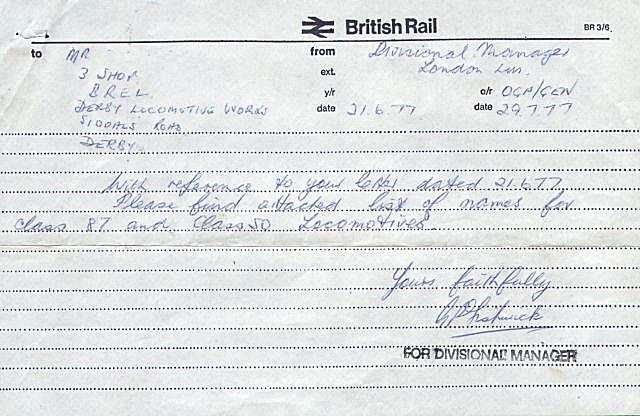 British Rail
BR 3/6
to MR from Divisional Manager
3 SHOP ext. London
B.R.E.L. y/r o/r OGA/GEN
DERBY LOCOMOTIVE WORKS date 21.6.77 date 29.7.77
SIDDALS ROAD
DERBY.
With reference to your letter dated 21.6.77
Please find attached list of names for
Class 87 and Class 50 Locomotives.
Yours faithfully
FOR DIVISIONAL MANAGER